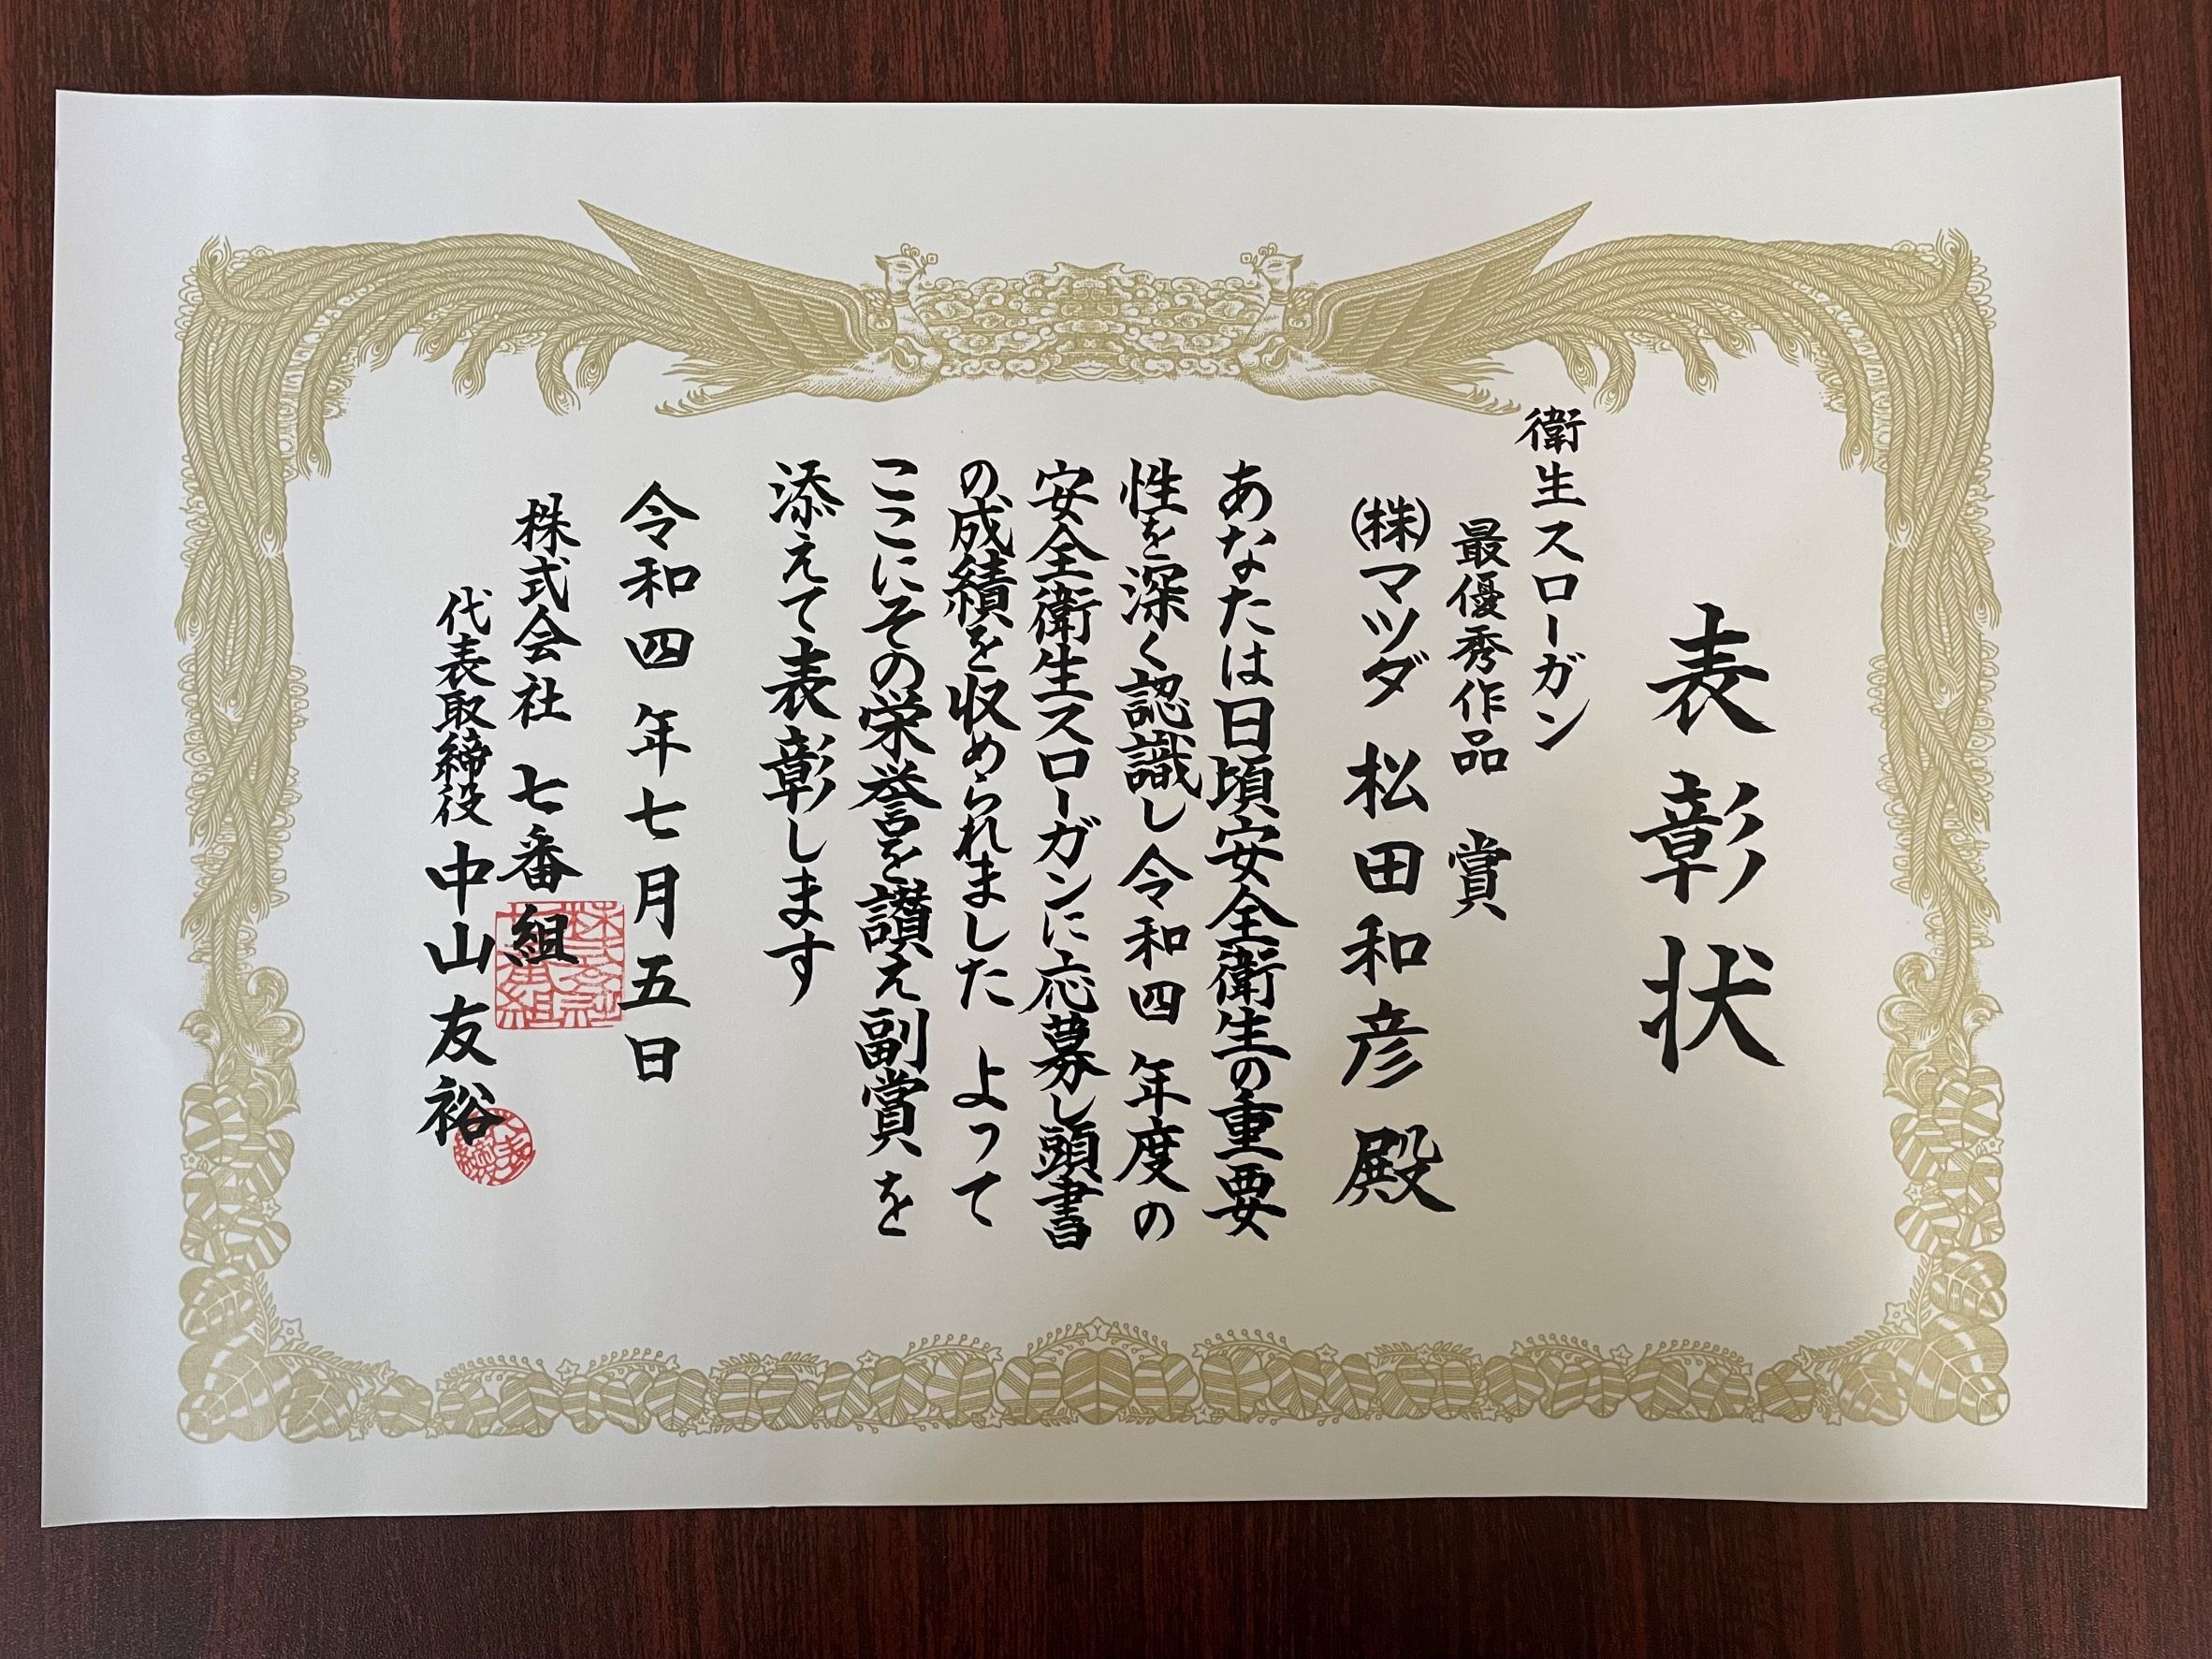 表彰状
衛生スローガン
最優秀作品 賞
㈱マツダ 松田和彦 殿
あなたは日頃安全衛生の重要
性を深く認識し令和四年度の
安全衛生スローガンに応募し頭書
の成績を収められました よって
ここにその栄誉を讃え副賞を
添えて表彰します
令和四年七月五日
株式会社 七番組
代表取締役 中山友裕